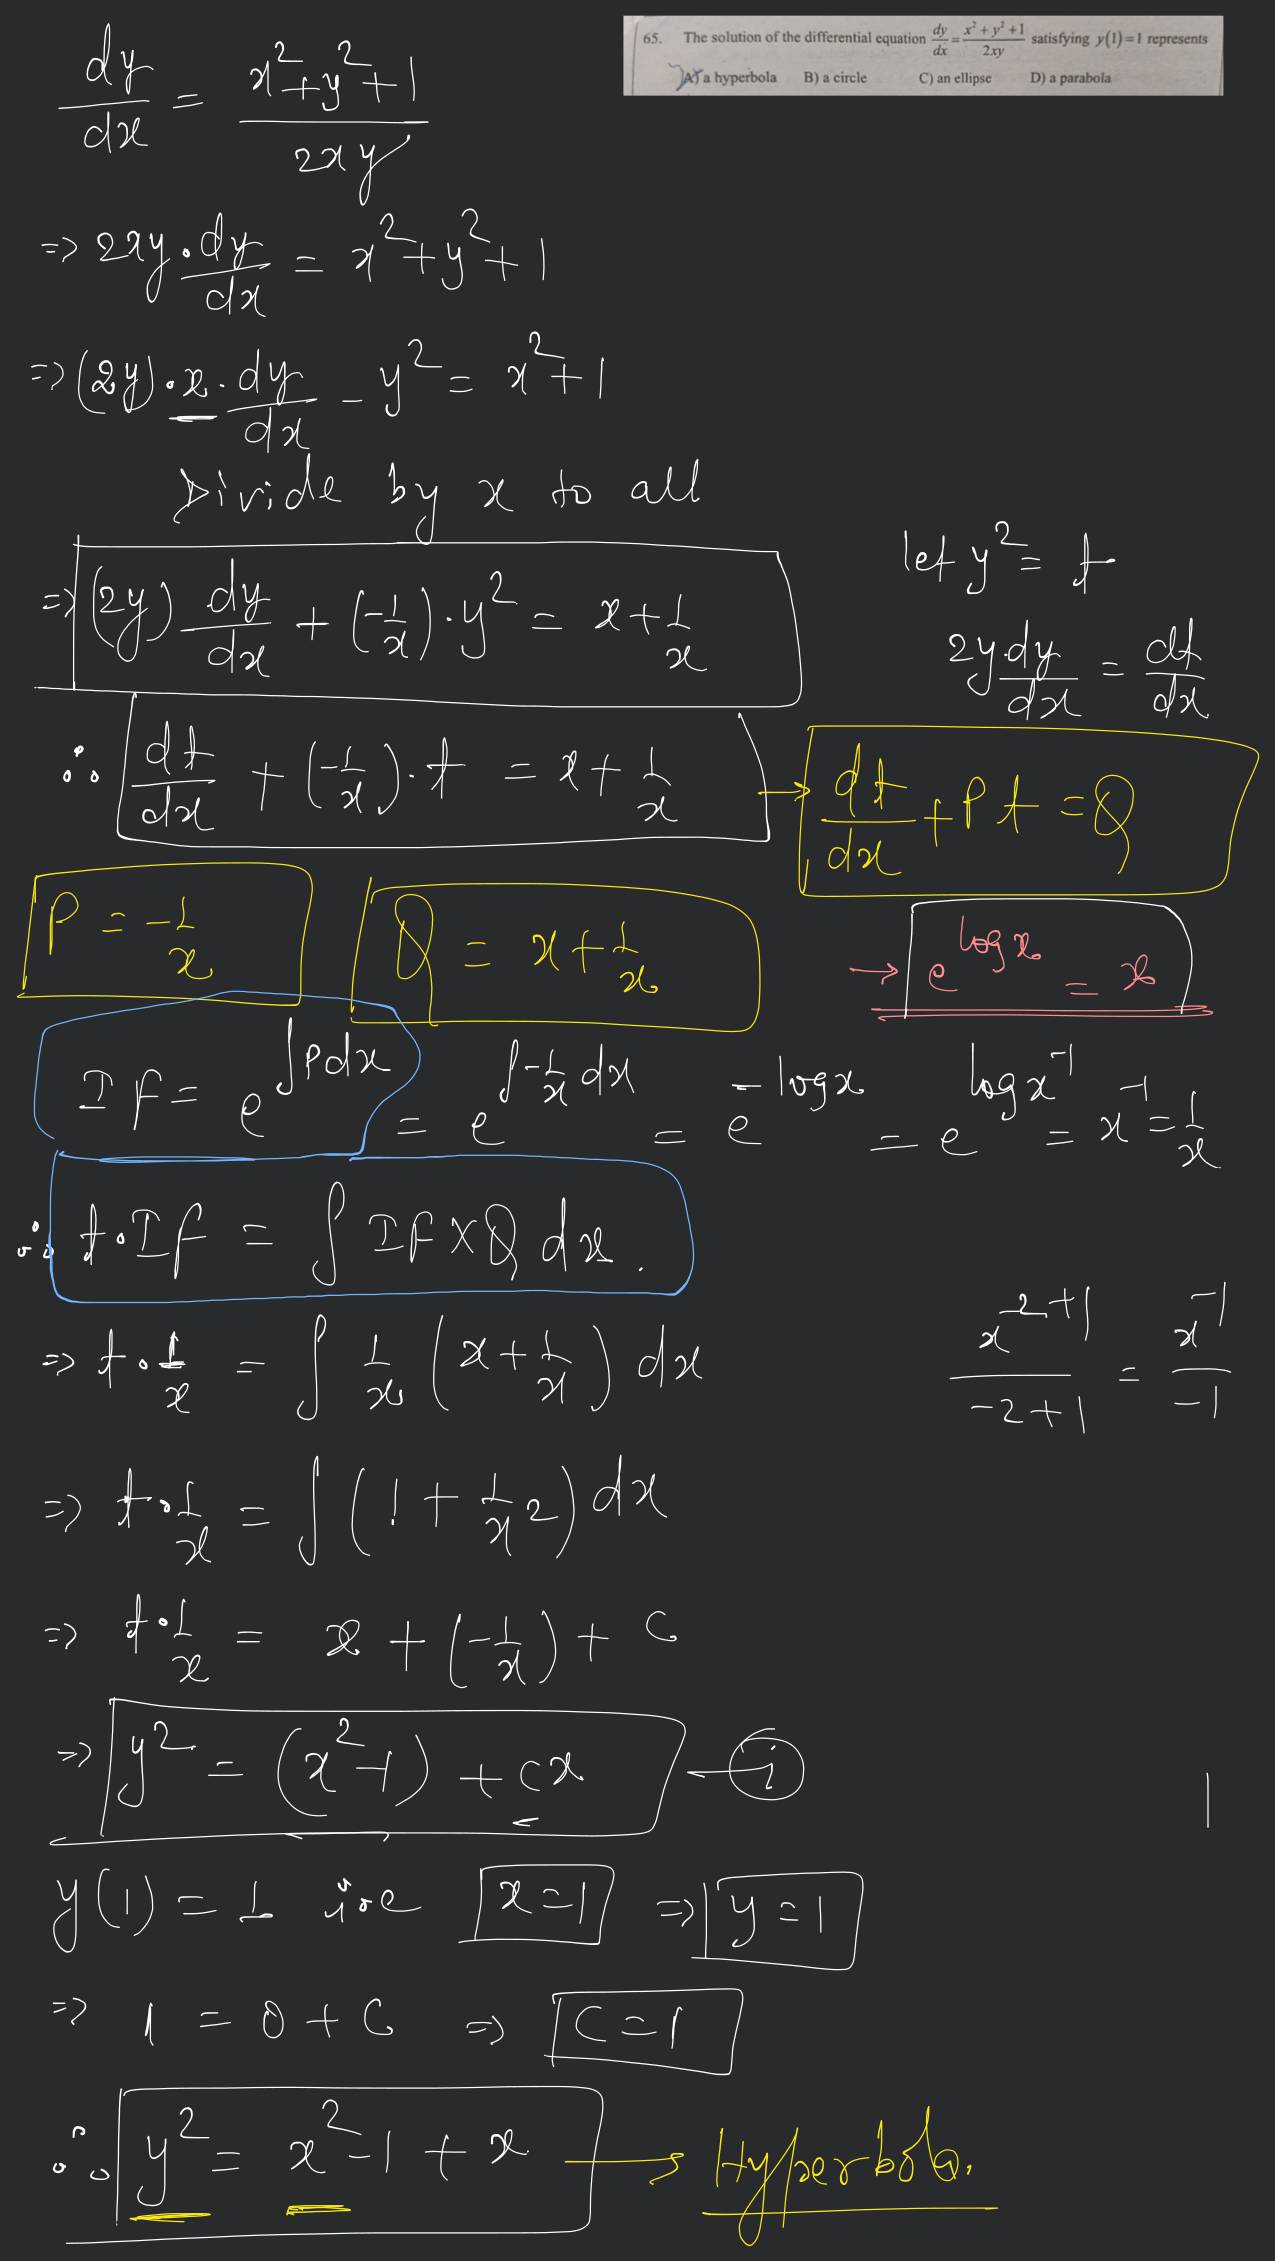 65. The solution of the differential equation dy/dx = (x² + y² + 1)/(2xy) satisfying y(1)=1 represents
A) a hyperbola B) a circle C) an ellipse D) a parabola
dy/dx = (x²+y²+1)/(2xy)
=> 2xy · dy/dx = x²+y²+1
=> (2y) · x · dy/dx - y² = x²+1
Divide by x to all
=> (2y) dy/dx + (-1/x) · y² = x + 1/x
let y² = t
2y · dy/dx = dt/dx
∴ dt/dx + (-1/x) · t = x + 1/x → dt/dx + Pt = Q
P = -1/x
Q = x + 1/x
→ e^(log x) = x
IF = e^(∫Pdx) = e^(∫-1/x dx) = e^(-logx) = e^(logx⁻¹) = x⁻¹ = 1/x
∴ t·IF = ∫ IF×Q dx.
=> t · 1/x = ∫ 1/x (x + 1/x) dx
x^(-2+1)/(-2+1) = x⁻¹/-1
=> t · 1/x = ∫ (1 + 1/x²) dx
=> t · 1/x = x + (-1/x) + C
=> y² = (x²-1) + cx ← i
y(1) = 1 i.e x=1 => y=1
=> 1 = 0 + C => C=1
∴ y² = x²-1 + x → Hyperbola.